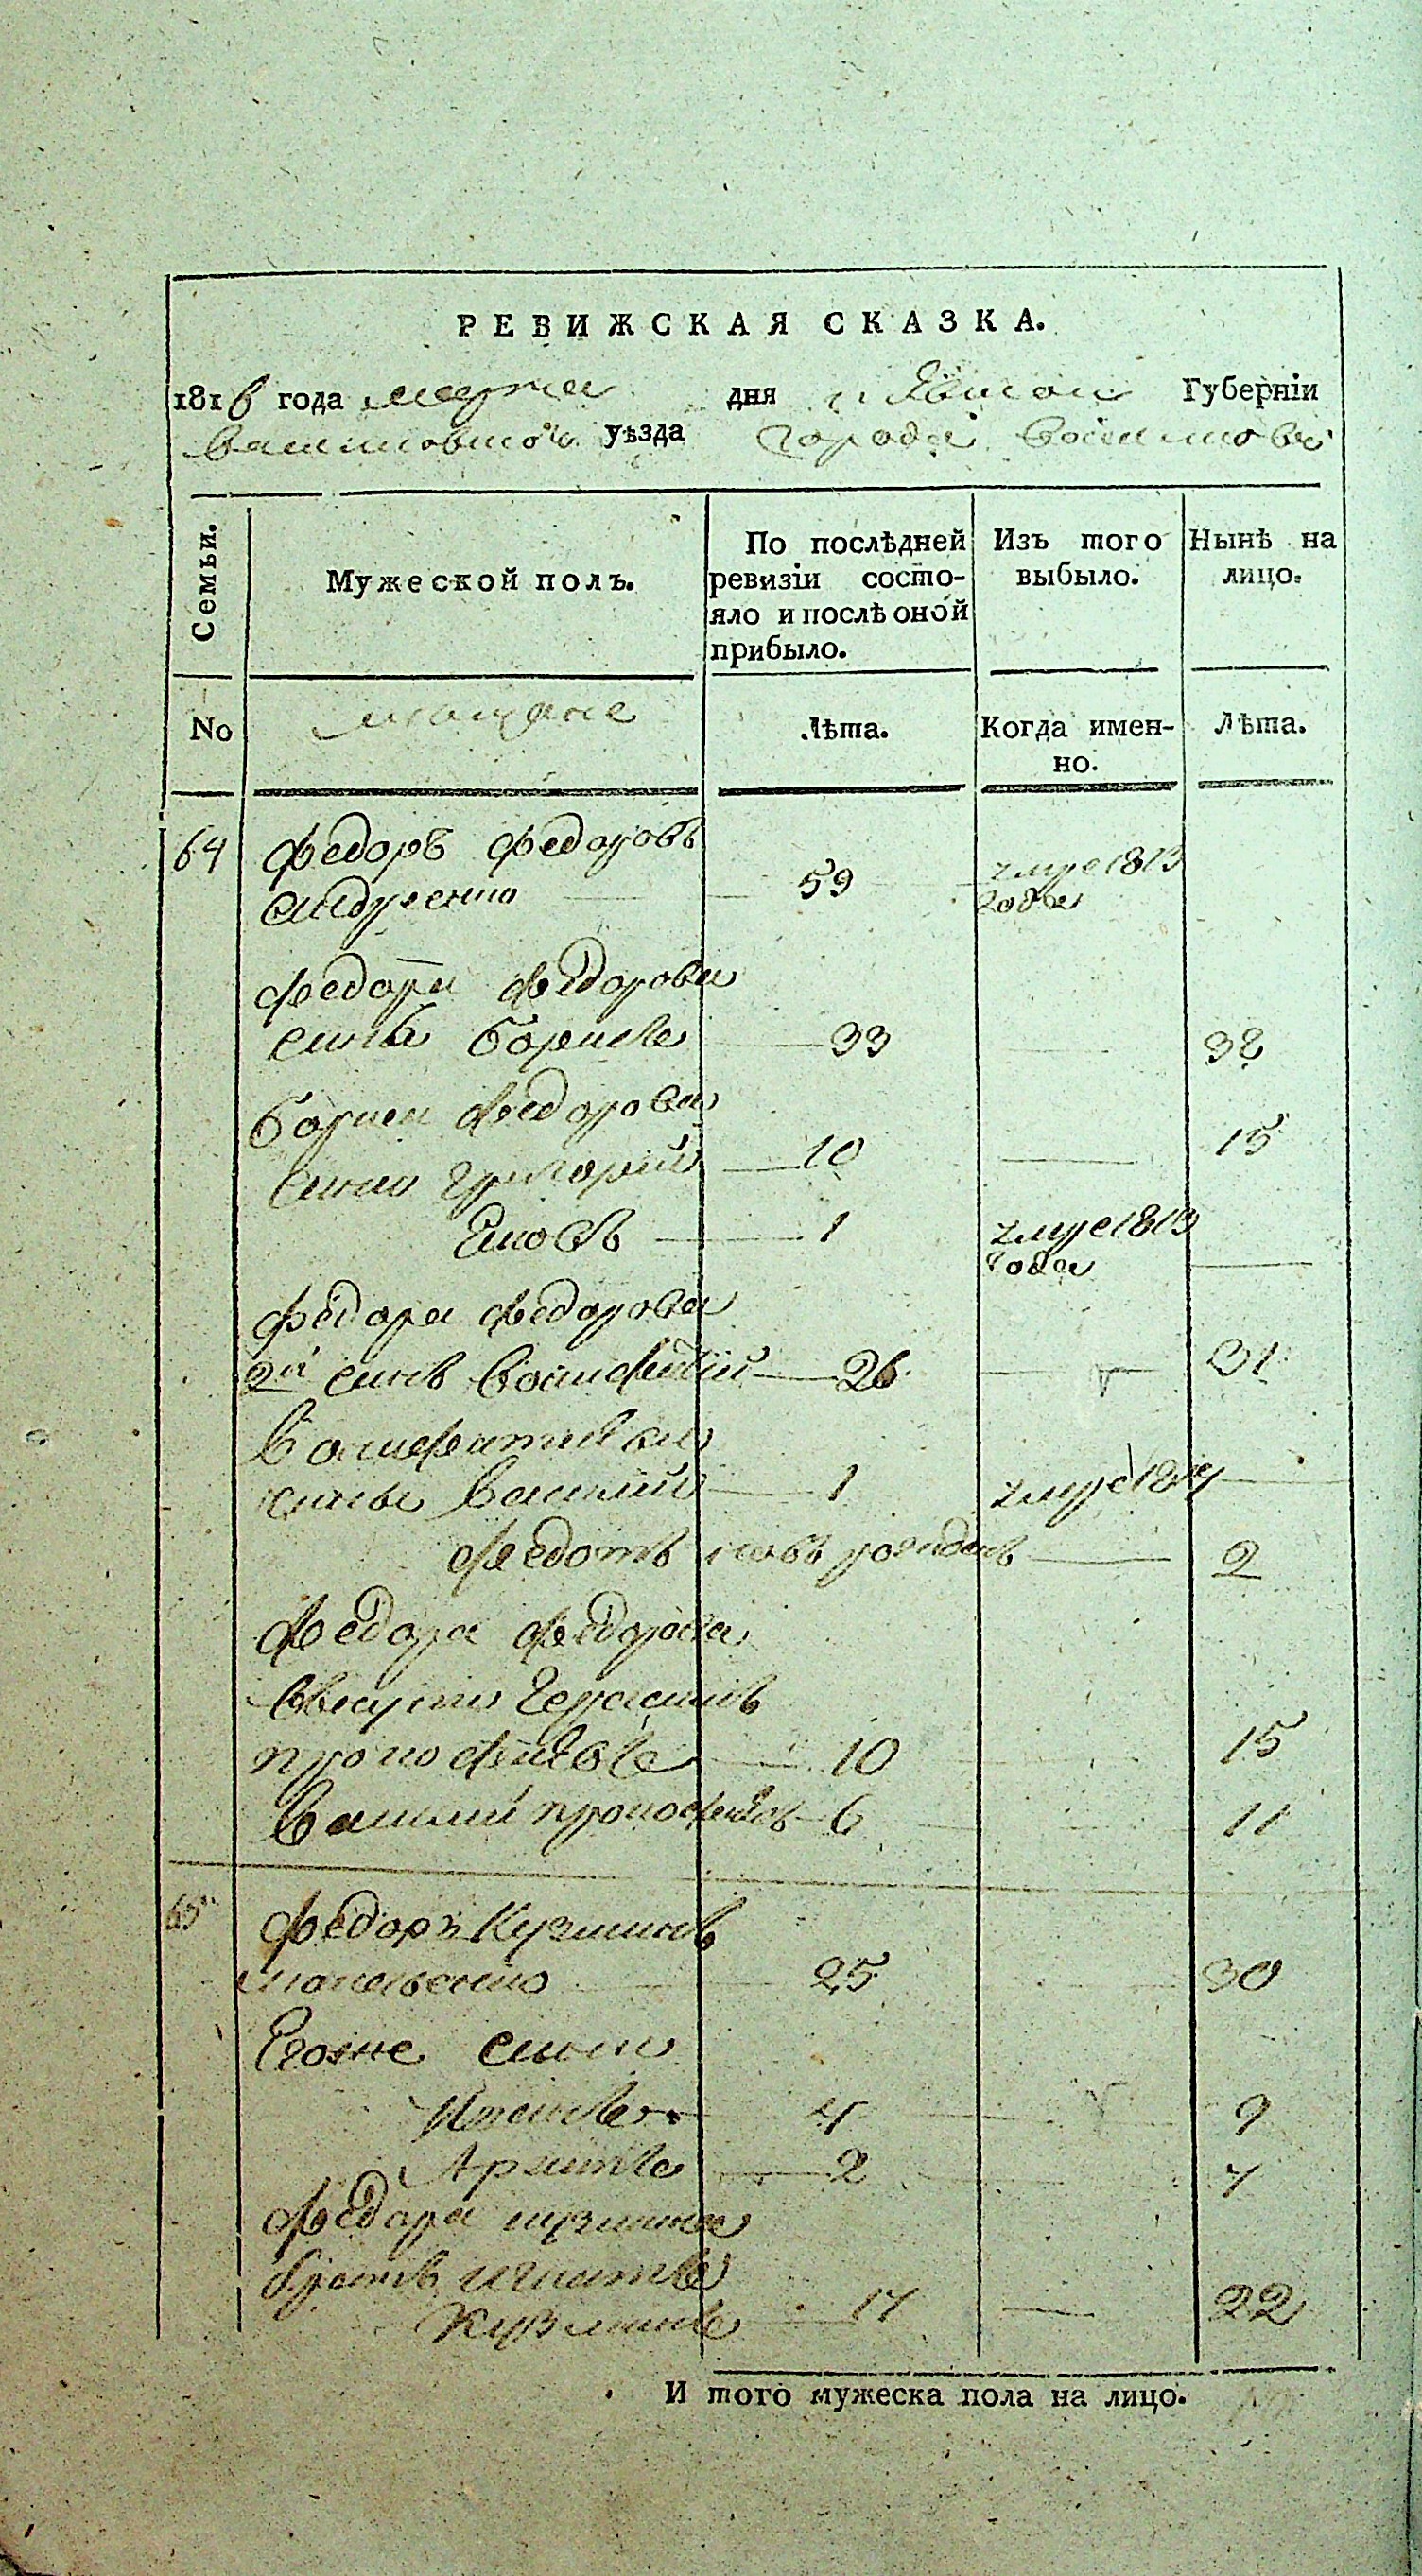 РЕВИЖСКАЯ СКАЗКА.
1816 года марта дня Губерніи
уѣзда города
Семьи.
Мужеской полъ.
По послѣдней ревизіи состо-
яло и послѣ оной
прибыло.
Изъ того
выбыло.
Нынѣ на
лицо.
No
мещане
Лѣта.
Когда имен-
но.
Лѣта.
64 Федоръ Федоровъ
59 умре 1813
года
Федора Федорова
сынъ Борисъ 33 38
Бориса Федорова
сынъ Григорий 10 15
Яковъ 1 умре 1813
года
Федора Федорова
2й сынъ 26 31
сынъ Василий 1 умре 1814
Федотъ новъ рожденъ 2
Федора Федорова
Герасимъ
Прокофьевъ 10 15
Василий Прокофьевъ 6 11
65 Федоръ Кузминъ
25 30
Егоже сыны
4 9
2 7
Федора Кузмина
братъ Игнатъ
Кузминъ 17 22
И того мужеска пола на лицо.